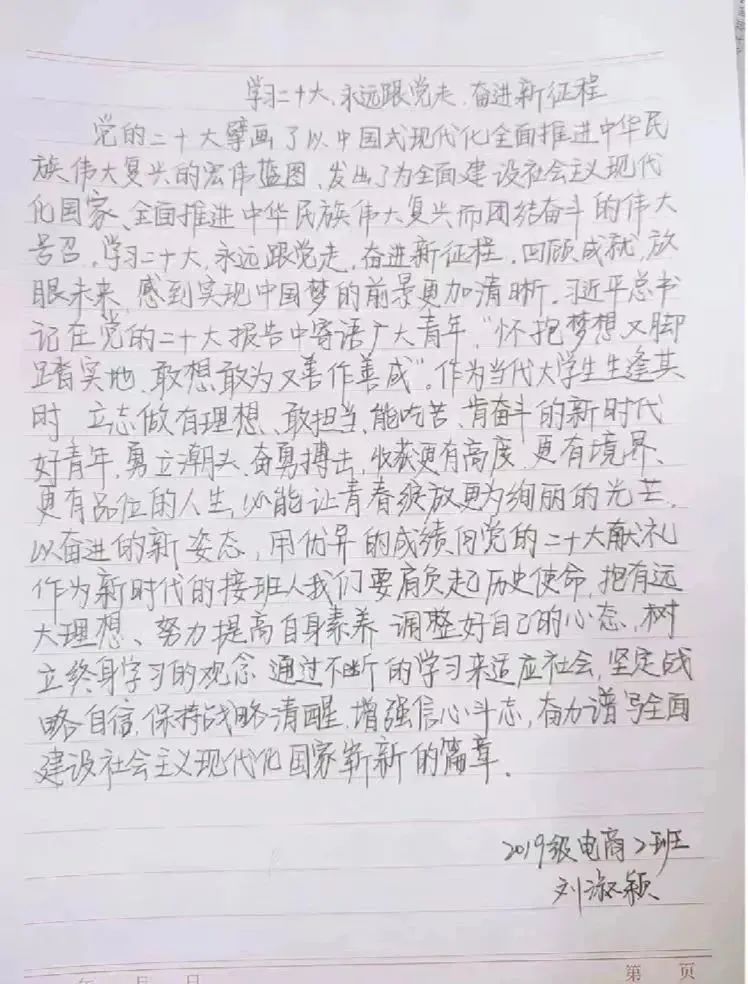 学习二十大、永远跟党走、奋进新征程
党的二十大擘画了以中国式现代化全面推进中华民
族伟大复兴的宏伟蓝图、发出了为全面建设社会主义现代
化国家、全面推进中华民族伟大复兴而团结奋斗的伟大
号召。学习二十大、永远跟党走，奋进新征程，回顾成就，放
眼未来，感到实现中国梦的前景更加清晰。习近平总书
记在党的二十大报告中寄语广大青年，“怀抱梦想又脚
踏实地、敢想敢为又善作善成”。作为当代大学生生逢其
时，立志做有理想、敢担当、能吃苦、肯奋斗的新时代
好青年，勇立潮头、奋勇搏击，收获更有高度、更有境界、
更有品位的人生，必能让青春绽放更为绚丽的光芒，
以奋进的新姿态，用优异的成绩向党的二十大献礼
作为新时代的接班人我们要肩负起历史使命，抱有远
大理想、努力提高自身素养 调整好自己的心态，树
立终身学习的观念 通过不断的学习来适应社会，坚定战
略自信，保持战略清醒，增强信心斗志，奋力谱写全面
建设社会主义现代化国家崭新的篇章。
2019级电商2班
刘淑颖
年 月 日
第 页